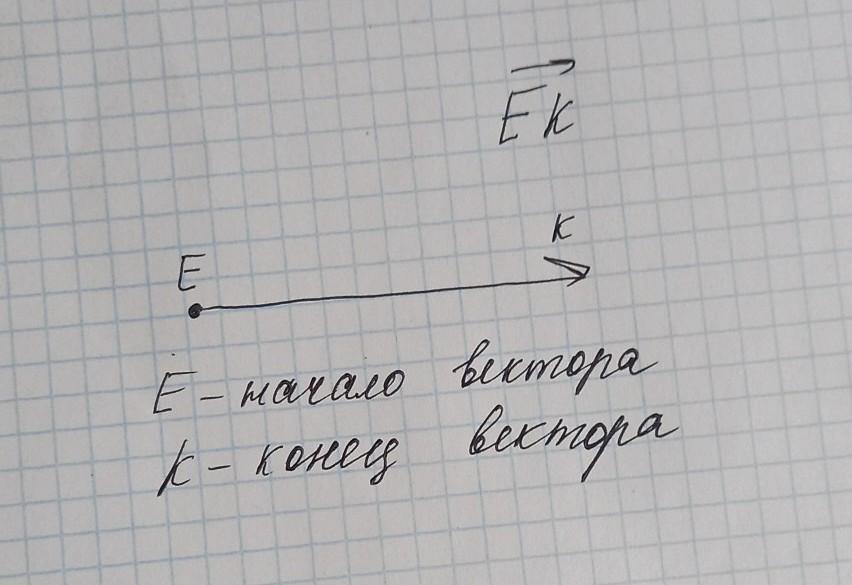 EK
K
E
E - начало вектора
K - конец вектора